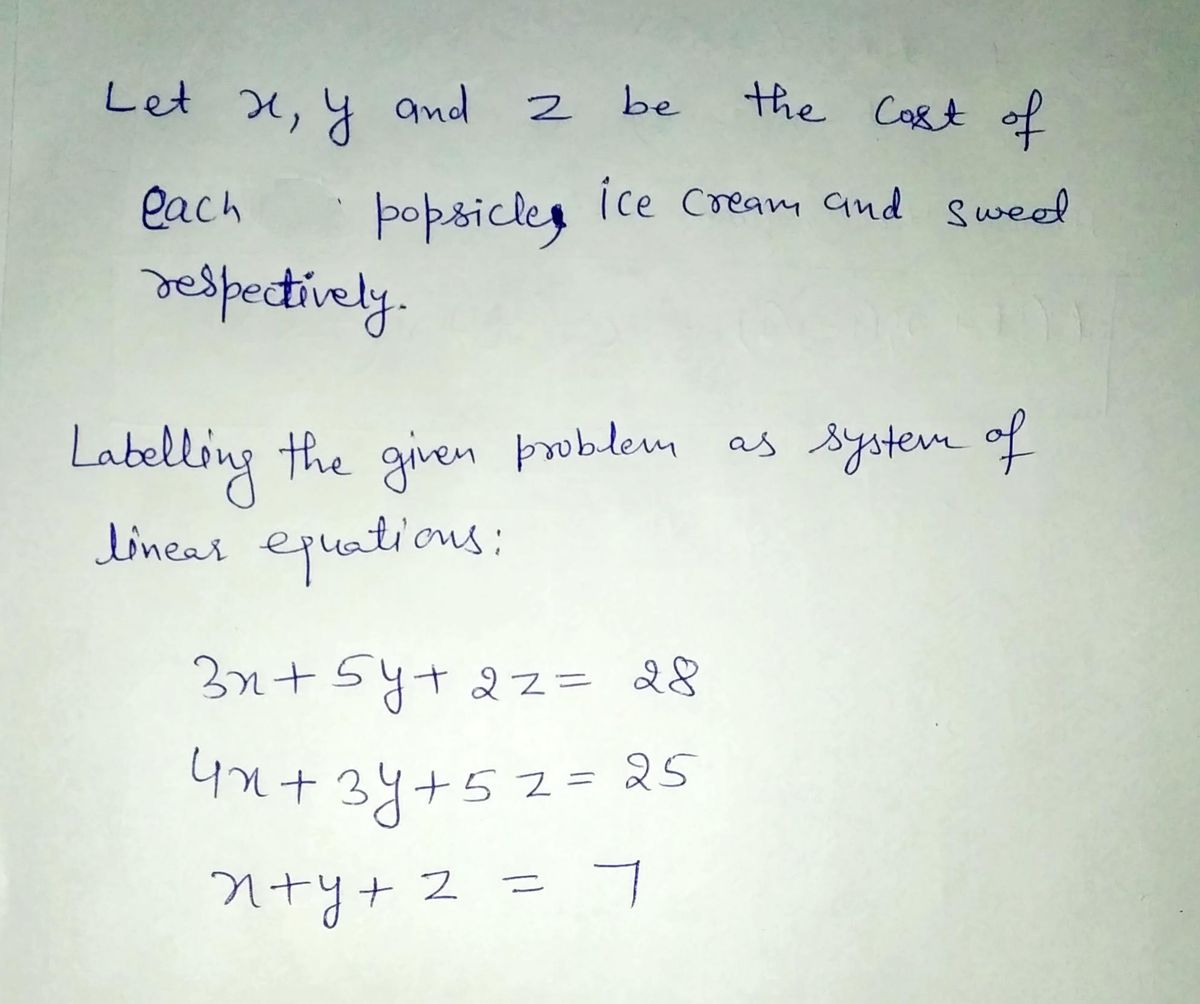 Let x, y and z be the cost of
each popsicle, ice cream and sweet
respectively.
Labelling the given problem as system of
linear equations:
3x + 5y + 2z = 28
4x + 3y + 5z = 25
x + y + z = 7